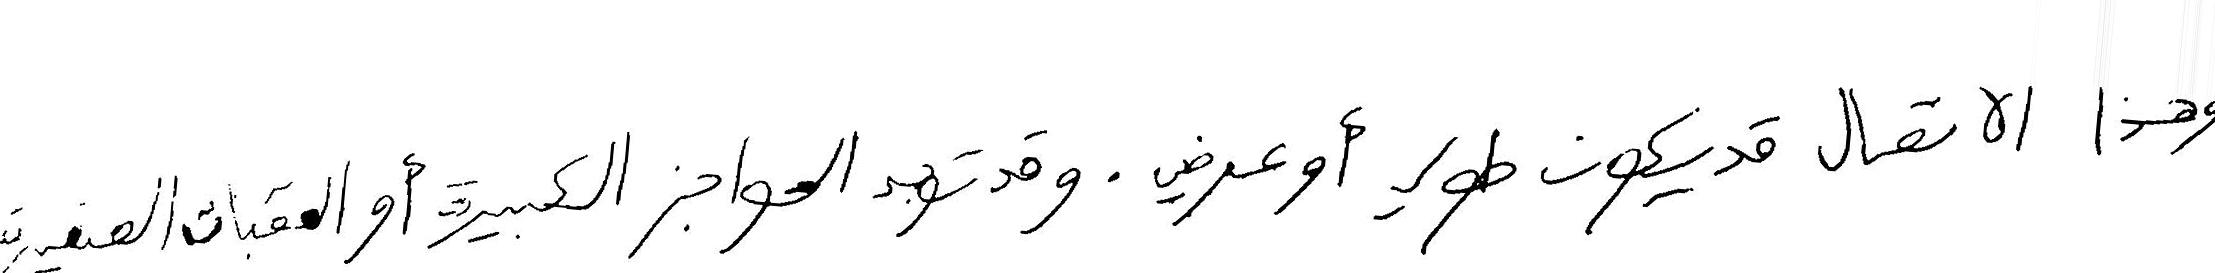 وهذا الاتصال قد يكون طولي أو عرضي . وقد توجد الحواجز الكبيرة أو العقبات الصغيرة